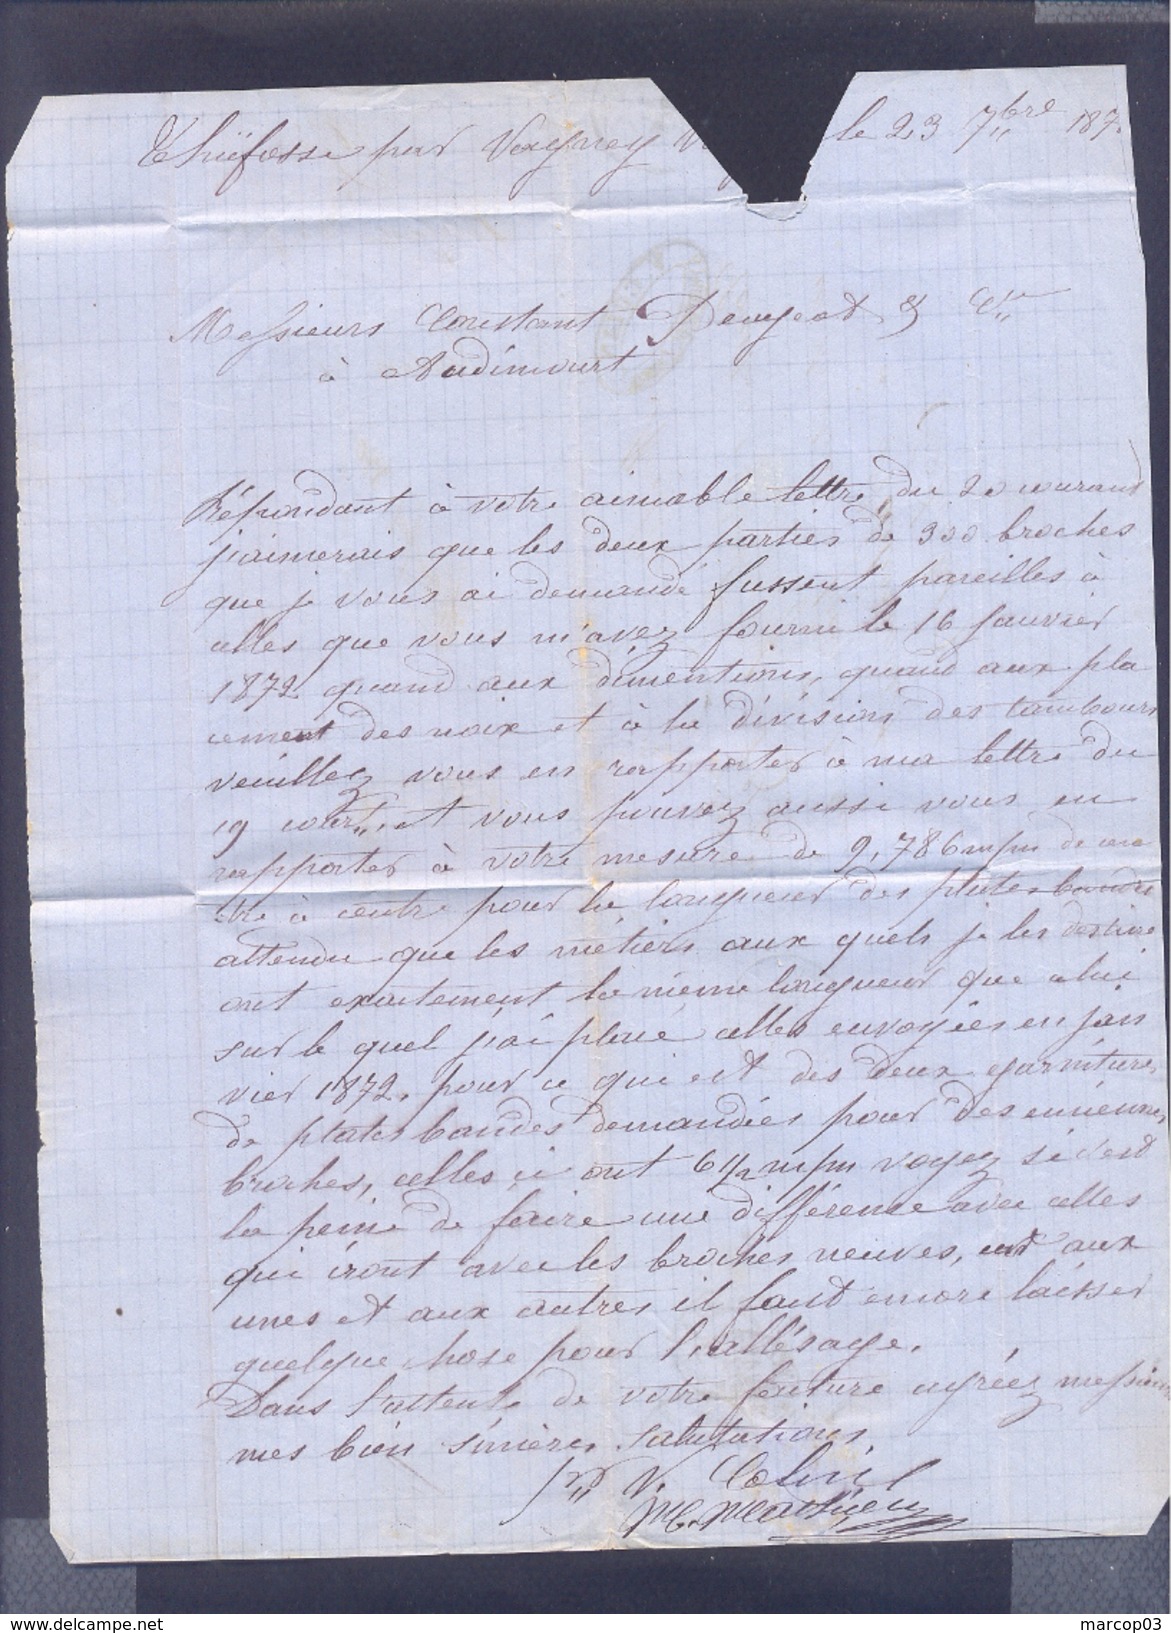 Thiéfosse par Vagney V le 23 7bre 187
Messieurs Constant Peugeot & Cie
à Audincourt
Répondant à votre aimable lettre du 20 courant
j'aimerais que les deux parties de 300 broches
que je vous ai demandé fussent pareilles à
celles que vous m'avez fourni le 16 Janvier
1872 quand aux dimentions, quand aux pla
cement des noix et à la division des tambours
veuillez vous en rapporter à ma lettre du
19 court, et vous pouvez aussi vous en
rapporter à votre mesure de 9,786 m/m de cen
tre à centre pour la longueur des plates bandes
attendu que les métiers aux quels je les destine
ont exactement la même longueur que celui
sur le quel j'ai placé celles envoyées en jan
vier 1872, pour ce qui est des deux garnitures
de plates bandes demandées pour des anciennes
broches, celles ci ont 6 1/2 m/m voyez si c'est
la peine de faire une différence avec celles
qui iront avec les broches neuves, aux
unes et aux autres il faut encore laisser
quelque chose pour l'allésage.
Dans l'attente de votre facture agréez messieurs
mes bien sincères salutations,
ppon V. Colin
M. Mathieu
marcop03